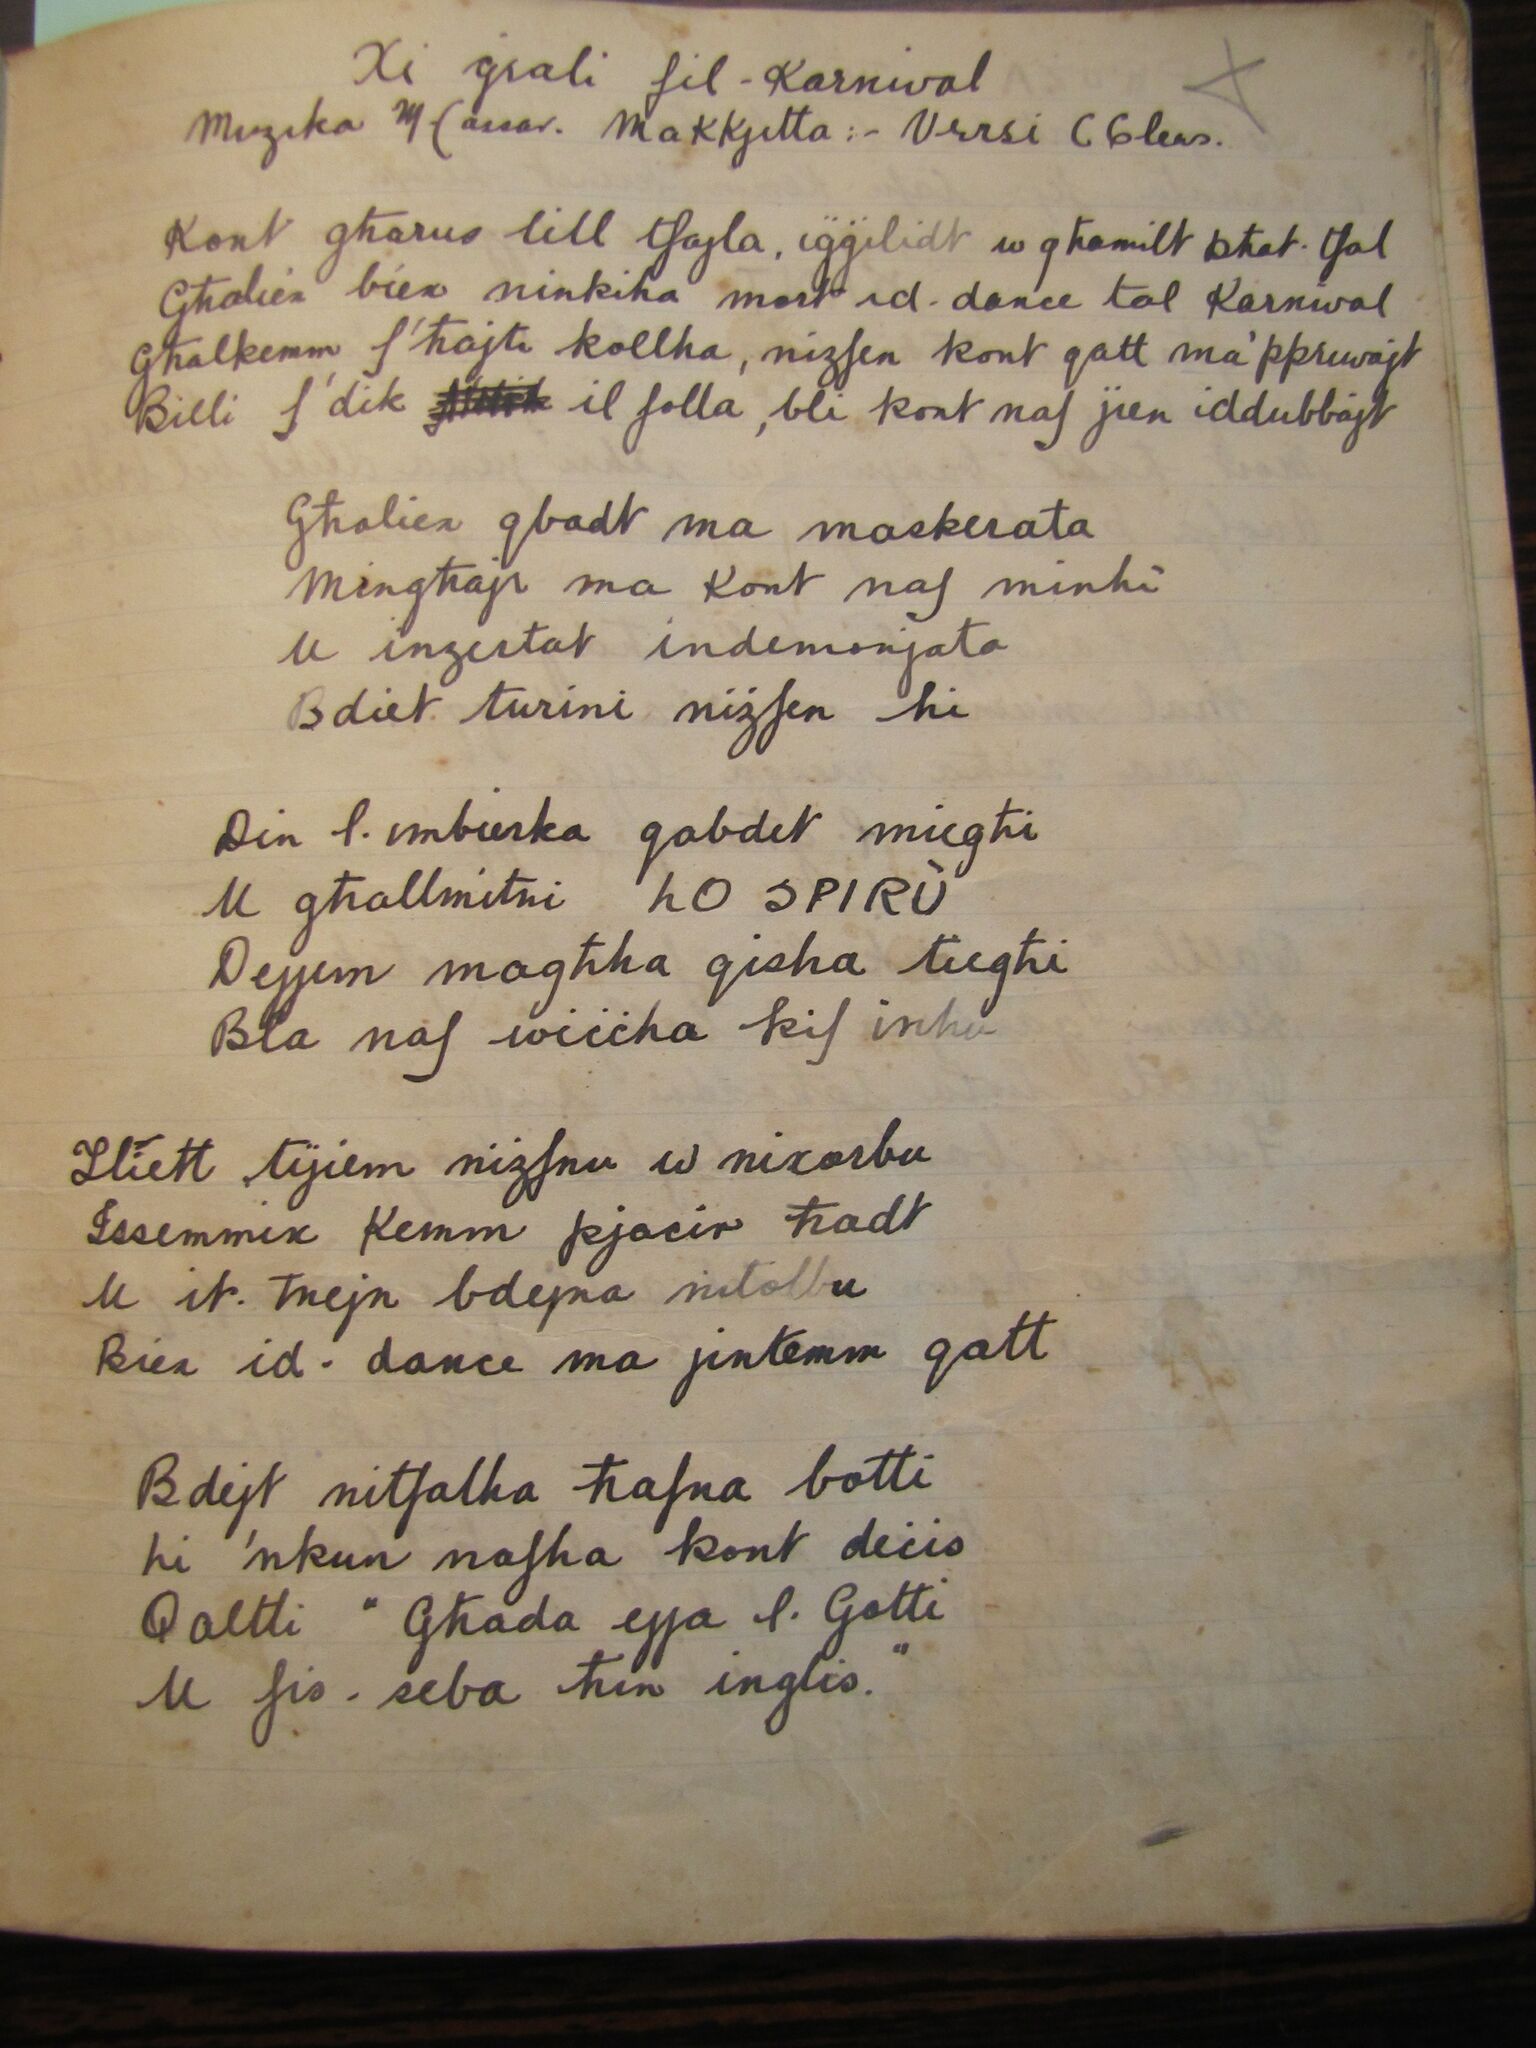 Xi ġrali fil-Karnival
Muzika M Cassar. Makkjetta :- Versi C
Kont għarus lill tfajla, iġġilidt w għamilt bħat-tfal
Għaliex biex ninkiha mort id-dance tal Karnival
Għalkemm f'ħajti kollha, nizfen kont qatt ma 'ppruvajt
Billi f'dik il folla, bli kont naf jien iddubbajt
Għaliex qbadt ma maskerata
Mingħajr ma kont naf minhi
U inzertat indemonjata
Bdiet turini niżfen hi
Din l-imbierka qabdet miegħi
U għallmitni hO SPIRÙ
Dejjem magħha qisha tiegħi
Bla naf wiċċha kif inhu
Iliett tijiem niżfnu w nixorbu
Issemmix Kemm pjaċir ħadt
U it-tnejn bdejna nitolbu
Biex id-dance ma jintemm qatt
Bdejt nitfalha ħafna botti
hi 'nkun nafha kont deċis
Qaltli "Għada ejja l-Gotti
U fis-seba ħin inglis."